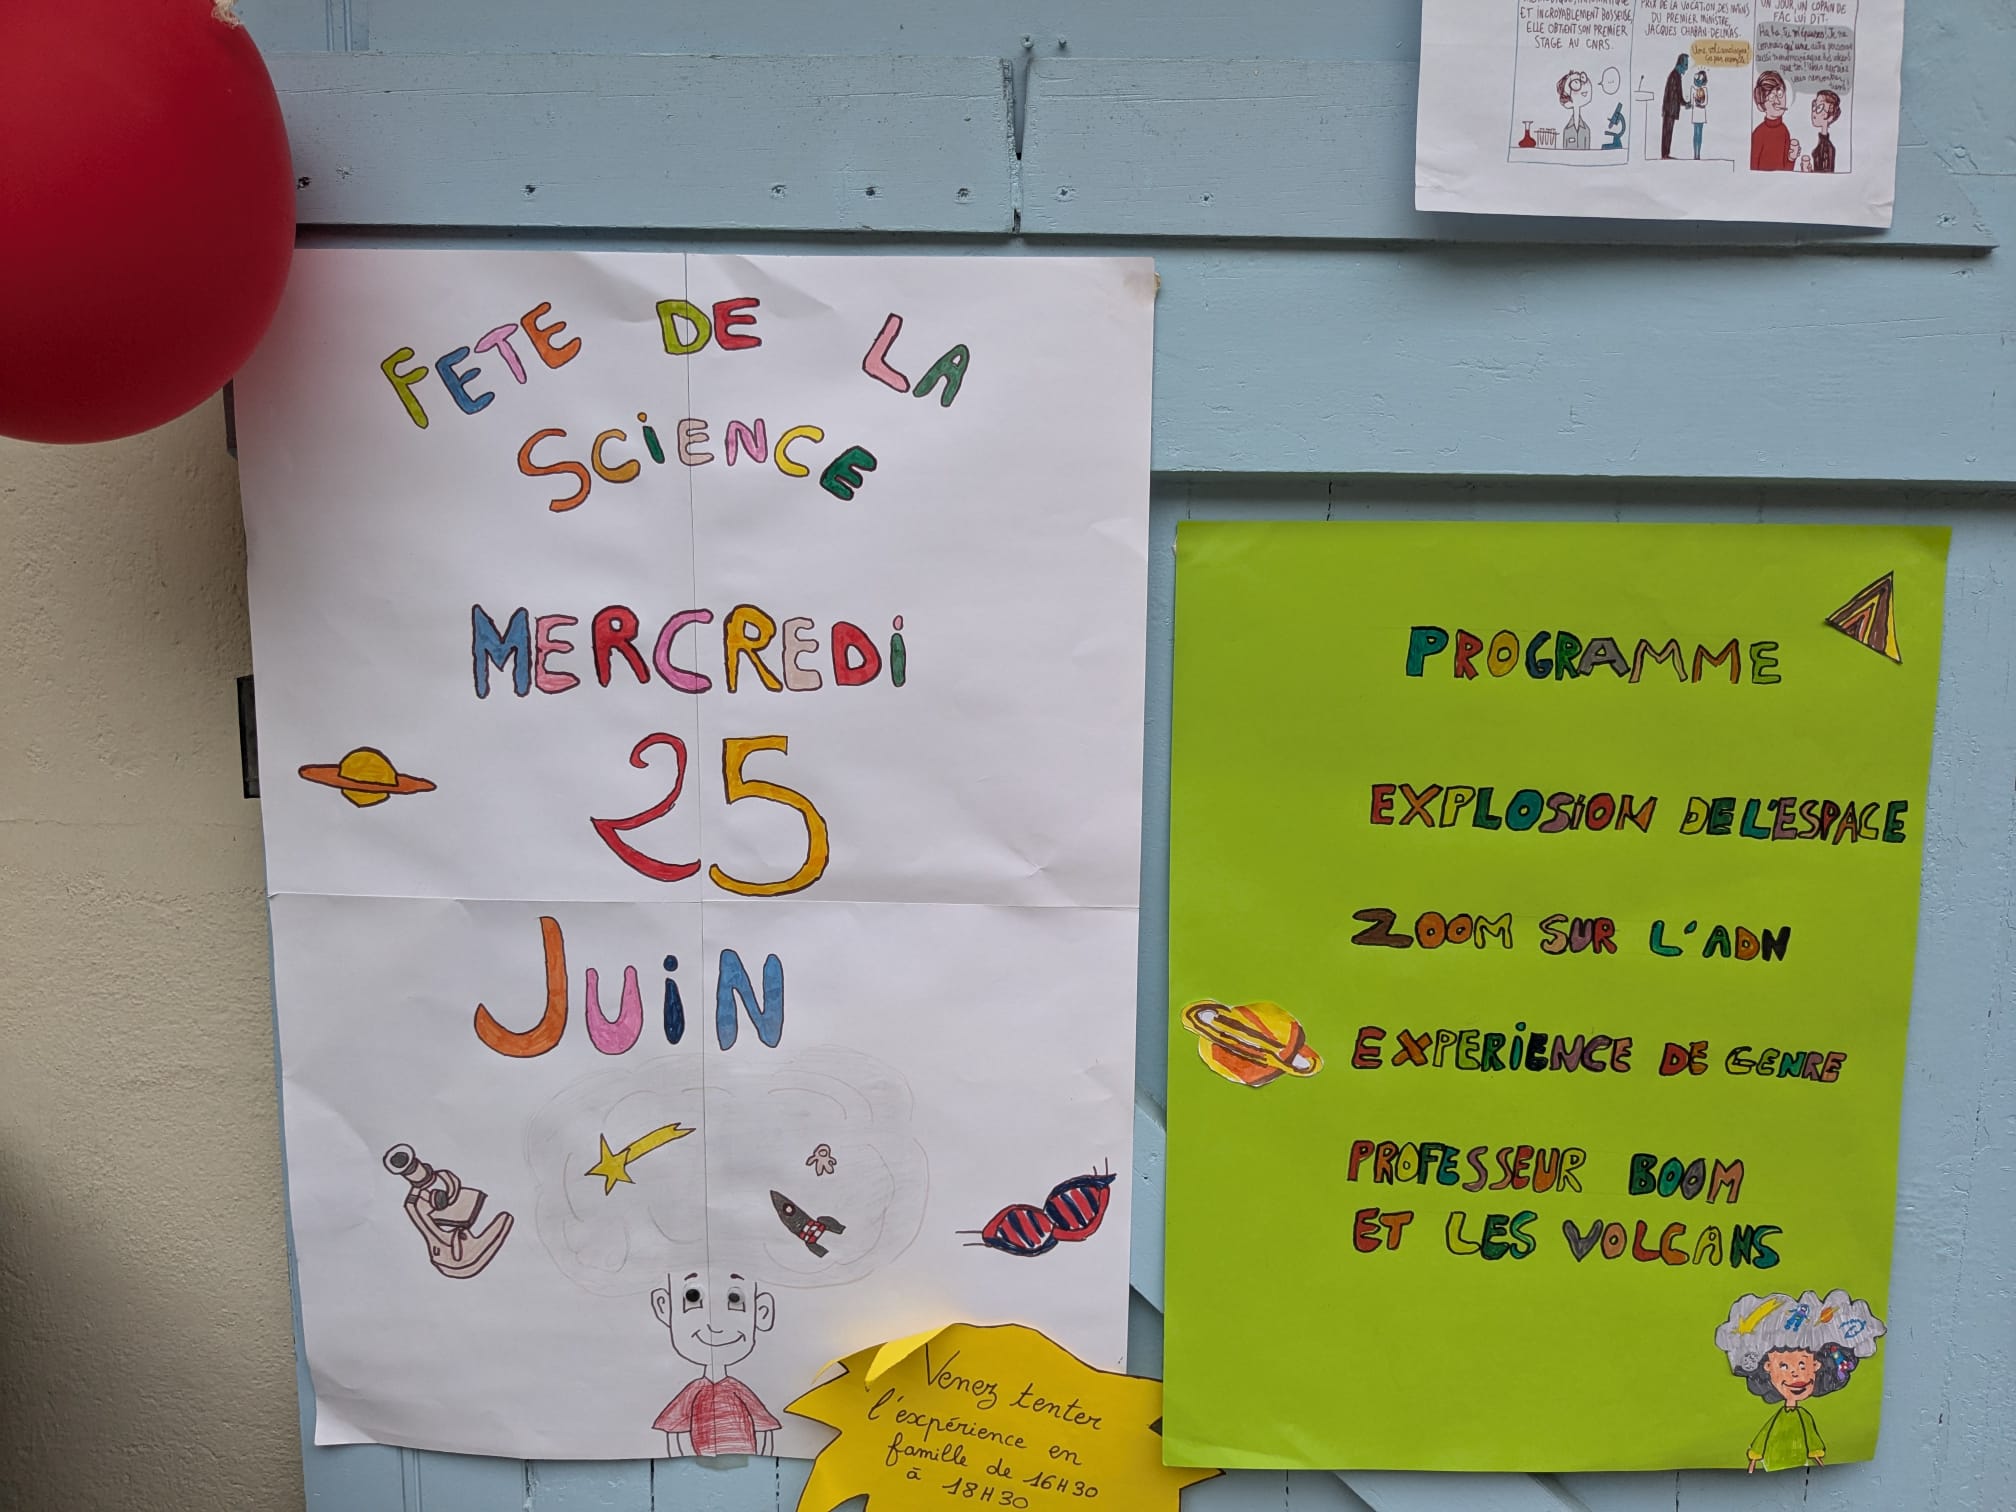 ET INCROYABLEMENT BOSSEUSE,
ELLE OBTIENT SON PREMIER
STAGE AU CNRS.
PRIX DE LA VOCATION, DES MAINS
DU PREMIER MINISTRE,
JACQUES CHABAN-DELMAS.
Une volcanologue!
Ça par exemple!
UN JOUR, UN COPAIN DE
FAC LUI DIT:
...
FETE DE LA
SCiENCE
MERCREDi
25
JUiN
Venez tenter
l'expérience en
famille de 16H30
à
18H30
PROGRAMME
EXPLOSiON DE L'ESPACE
ZOOM SUR L'ADN
EXPERiENCE DE GENRE
PROFESSEUR BOOM
ET LES VOLCANS